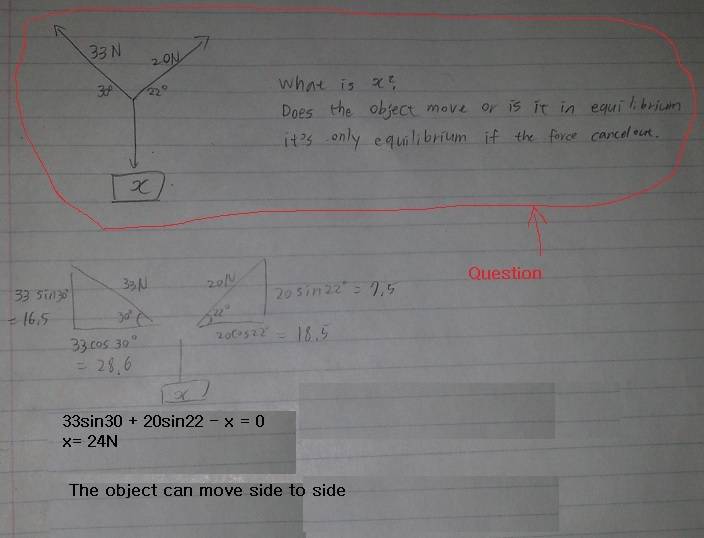 33N
20N
30°
22°
x
What is x?
Does the object move or is it in equilibrium
it's only equilibrium if the force cancel out.
Question
33 sin30°
= 16.5
33N
30°
33cos 30°
= 28.6
20N
22°
20 sin22° = 7.5
20cos22 = 18.5
x
33sin30 + 20sin22 - x = 0
x= 24N
The object can move side to side